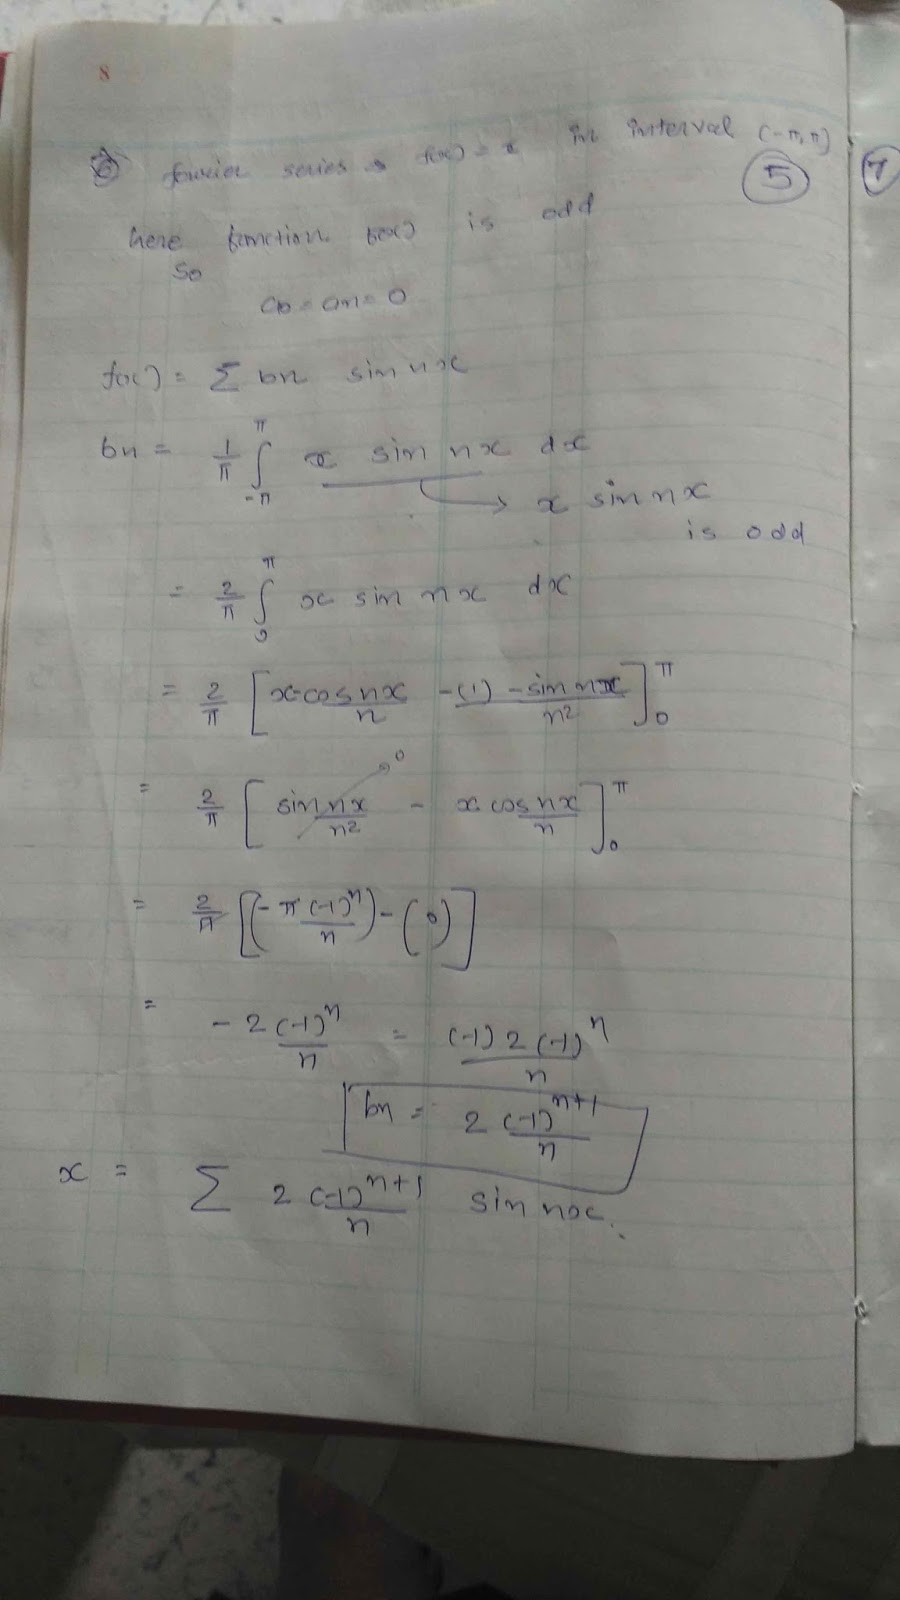 8
⑥ fourier series f(x) = x in interval (-π, π)
⑤ ⑦
here function f(x) is odd
so
a0 = an = 0
f(x) = Σ bn sin nx
bn = 1/π ∫_{-π}^{π} x sin nx dx
→ x sin nx
is odd
= 2/π ∫_0^π x sin nx dx
= 2/π [x-cos nx/n -(1) -sin nx/n²]_0^π
= 2/π [sin nx/n² → 0 - x cos nx/n]_0^π
= 2/π [(-π(-1)^n/n) - (0)]
= -2(-1)^n/n = (-1)2(-1)^n/n
bn = 2(-1)^{n+1}/n
x = Σ 2(-1)^{n+1}/n sin nx.